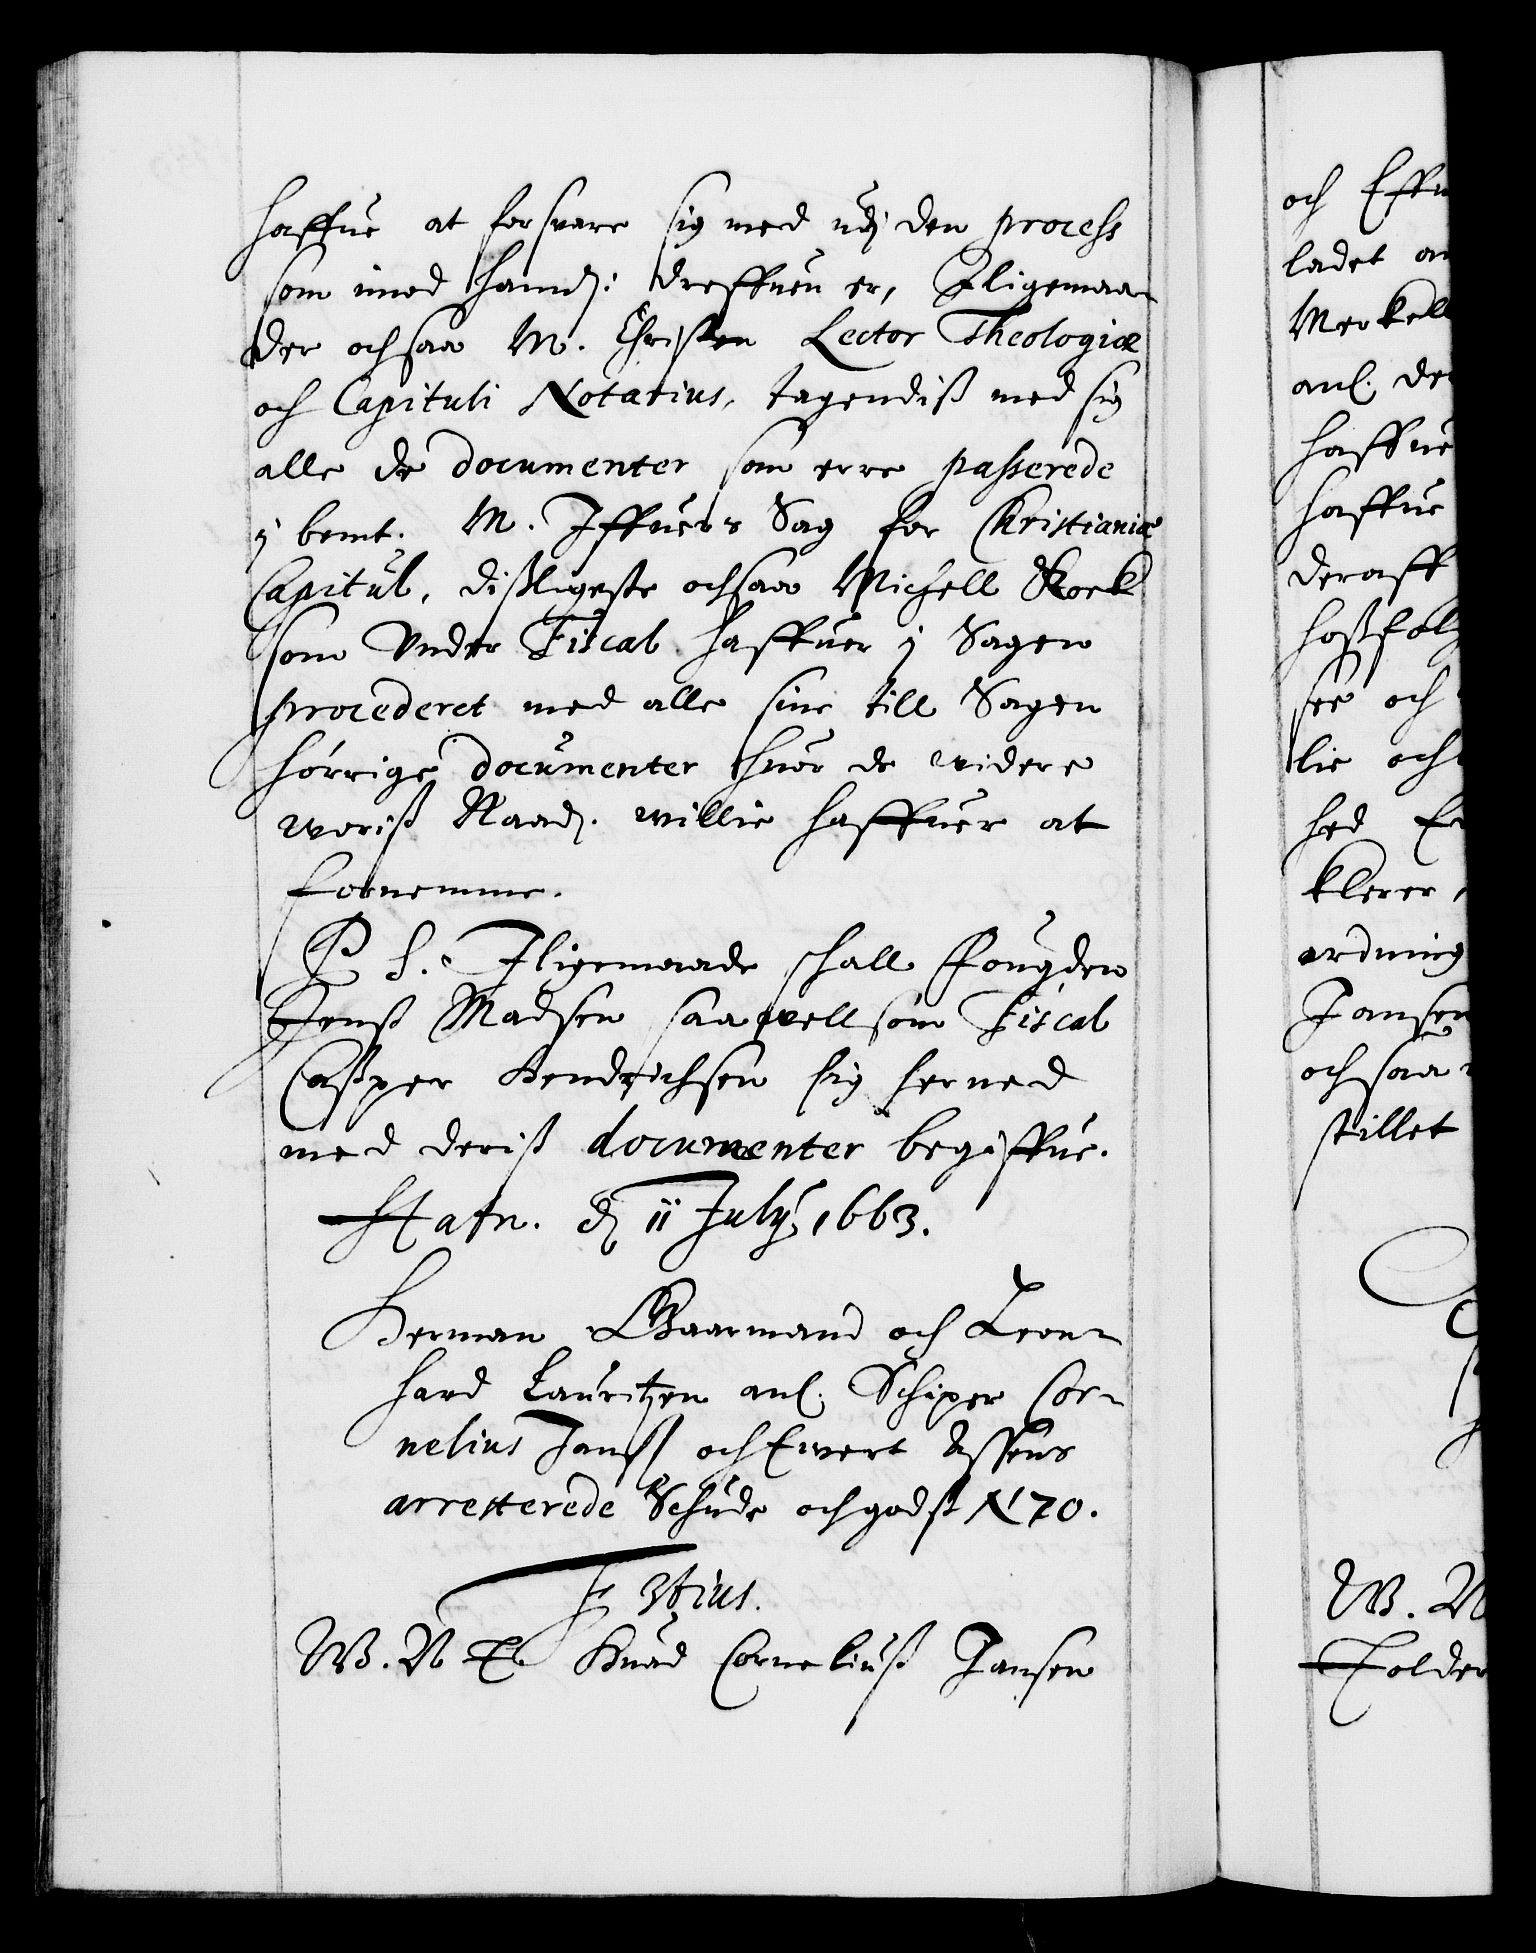 haffue at forsvare sig med udj den process
som imod hannem: dreffuen er, Iligemaa-
der ochsaa M. Christen Lector Theologiæ
och Capituli Notarius, tagendiß med sig
alle de documenter som erre passerede
j bemt. M. Iffuers Sag for Christianiæ
Capitul, dißligeste ochsaa Michell Skoek
som Under Fiscal haffuer j Sagen
procederet med alle sine till Sagen
hörrige documenter huor de videre
woriß Naad. willie haffuer at
fornemme.
P S. Iligemaade schall ffougden
Jenß Madsen saa well som Fiscal
Caßper Hendrichsen sig herned
med deriß documenter begiffue.
Hafn. d 11 July 1663.
Herman Gaarmand och Leon-
hard Lauritzen anl. Schiper Cor-
nelius Janß och Ewert Assens
arresterede Schude och godß N 70.
F 3tius.
W. N E. Huad Corneliuß Jansen
och Eff
ladet an
Merkell
anl. de
haffue
haffue
deraff
hoßfølg
see och
lie och
hed
klerer,
ordning
Jansen
ochsaa
stillet
W. N
Tolder